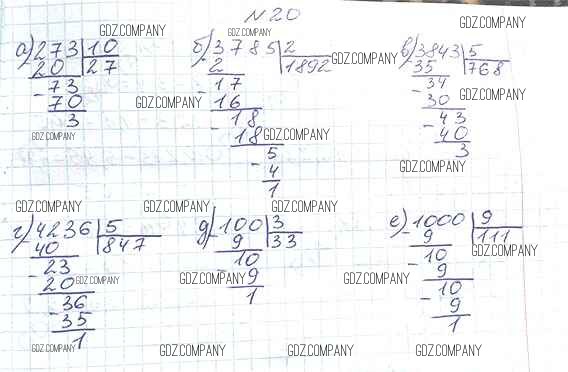 №20
GDZ.COMPANY
а) 273 | 10
GDZ.COMPANY
20 | 27
- 73
70
3
GDZ.COMPANY
б) 3785 | 2
GDZ.COMPANY
2 | 1892
GDZ.COMPANY
- 17
16
GDZ.COMPANY
18
- 18
GDZ.COMPANY
5
- 4
1
в) 3843 | 5
GDZ.COMPANY
35 | 768
- 34
GDZ.COMPANY
30
- 43
40
3
GDZ.COMPANY
GDZ.COMPANY
г) 4236 | 5
40 | 847
- 23
20
GDZ.COMPANY
36
- 35
1
GDZ.COMPANY
GDZ.COMPANY
д) 100 | 3
GDZ.COMPANY
9 | 33
- 10
GDZ.COMPANY
9
1
GDZ.COMPANY
GDZ.COMPANY
е) 1000 | 9
- 9 | 111
GDZ.COMPANY
10
- 9
GDZ.COMPANY
10
- 9
1
GDZ.COMPANY
GDZ.COMPANY